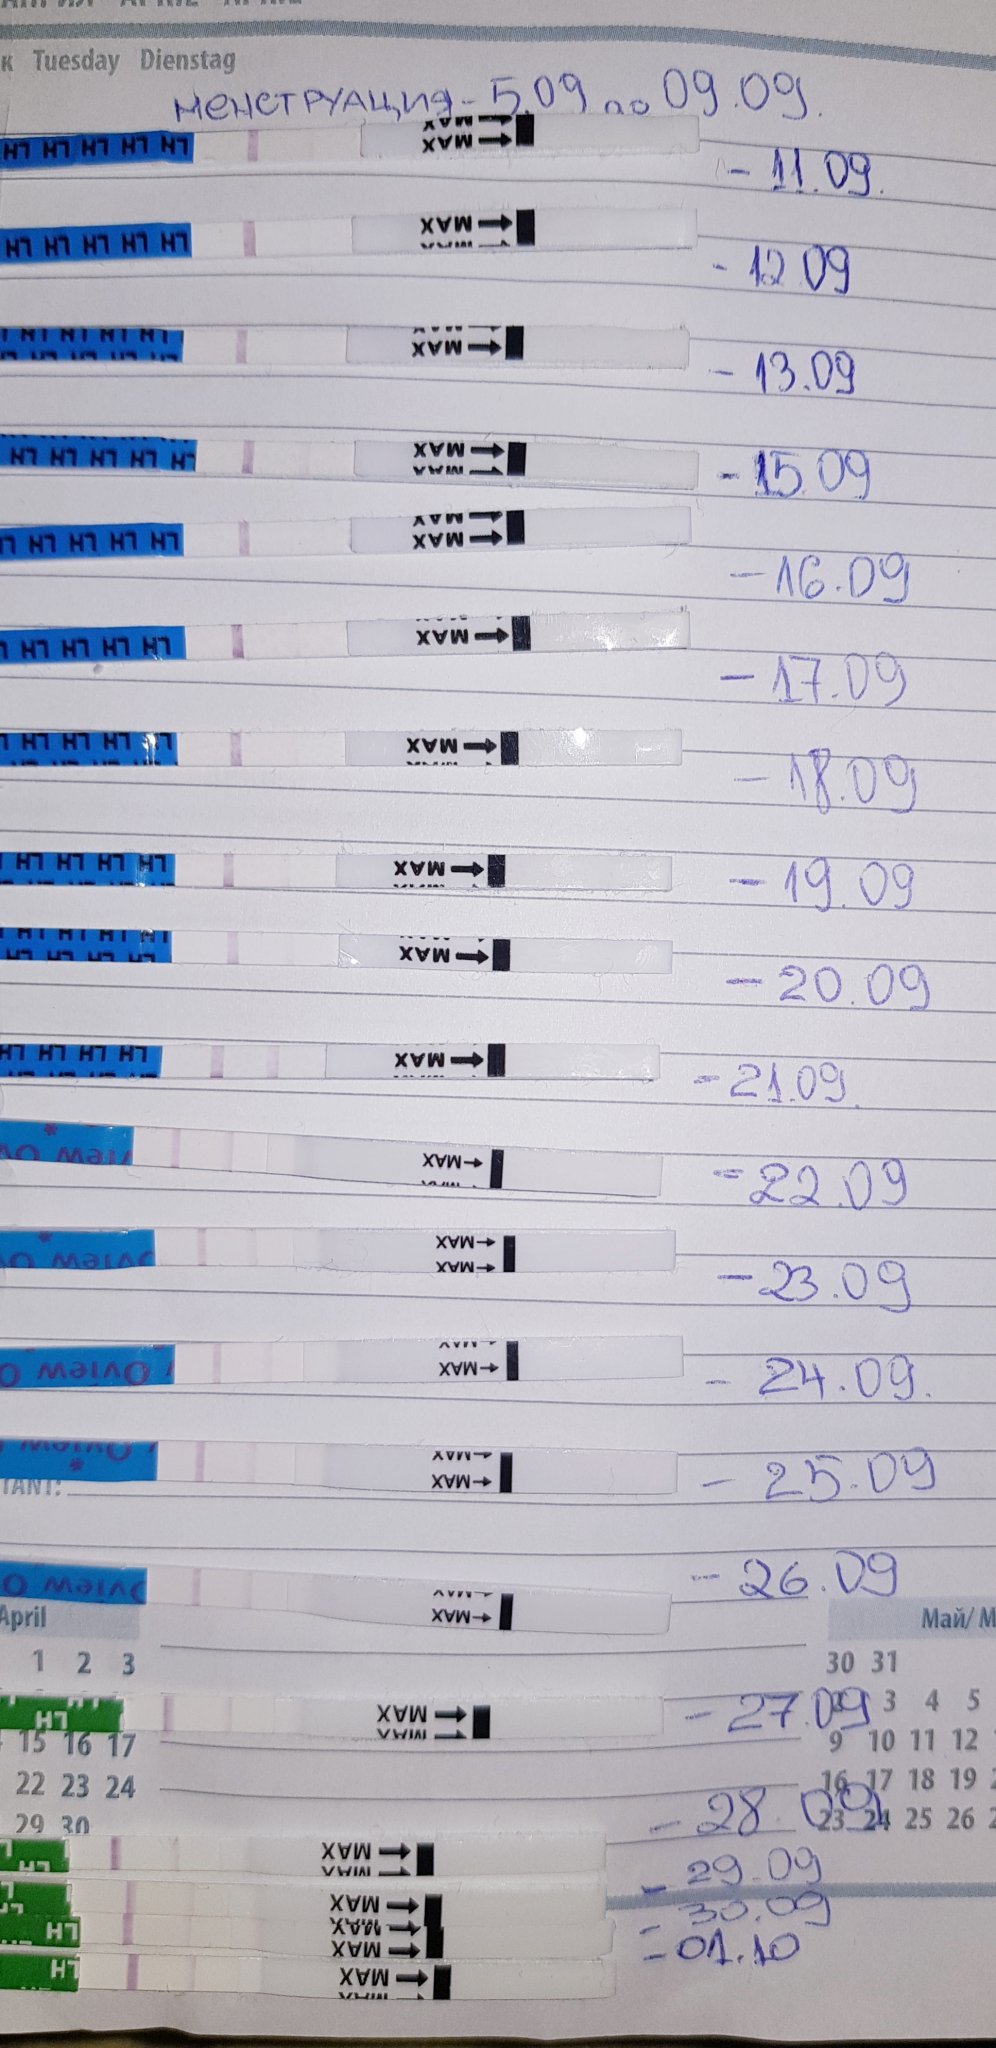 к Tuesday Dienstag
менструация - 5.09 по 09.09.
LH LH LH LH LH MAX MAX - 11.09.
LH LH LH LH LH MAX - 12 09
LH LH LH LH MAX - 13.09
LH LH LH LH LH MAX - 15.09
LH LH LH LH MAX MAX - 16.09
LH LH LH LH MAX - 17.09
LH LH LH LH MAX - 18.09
LH LH LH LH MAX - 19.09
LH LH LH LH MAX - 20.09
LH LH LH LH MAX - 21.09.
view Ov MAX - 22.09
Oview MAX MAX - 23.09
Oview O MAX MAX - 24.09.
Oview MAX MAX - 25.09
TANT:
Oview O MAX MAX - 26.09
April Май/ M
1 2 3 30 31
LH MAX MAX - 27.09 3 4 5
15 16 17 9 10 11 12
22 23 24 16 17 18 19
- 28.09
29 30 23 24 25 26
LH MAX MAX - 29.09
MAX - 30.09
LH MAX MAX - 01.10
LH MAX